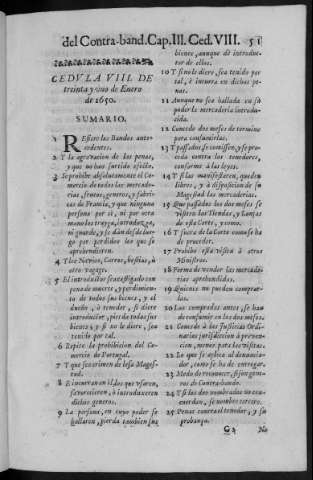 del Contra-band. Cap. III. Ced. VIII. 51
CEDVLA VIII. DE
treinta y uno de Enero
de 1650.
SUMARIO.
1 REfiere los Bandos antecedentes.
2 Y la agravacion de las penas,
y que no han surtido efecto.
3 Se prohibe absolutamente el Comercio
de todas las mercaderias,
frutos, generos, y fabricas
de Francia, y que ninguna
persona por si, ni por otra
mano los trayga, introduzga,
ni guarde, y se dàn desde luego
por perdidos los que se
aprehendieren.
4 Y los Navios, Carros, bestias, ù
otro vagage.
5 El introductor sea castigado con
pena de muerte, y perdimiento
de todos sus bienes, y el
dueño, ò tenedor, si diere
introductor, pierda todos sus
bienes; y si no le diere, sea
tenido por tal.
6 Repite la prohibicion del Comercio
de Portugal.
7 Y que sea crimen de lesa Magestad.
8 E incurran en èl los que usaren,
favorecieren, ò introduxeren
dichos generos.
9 La persona, en cuyo poder se
hallaren, pierda tambien sus
bienes, aunque dè introductor
de ellos.
10 Y si no le diere, sea tenido por
tal, è incurra en dichas penas.
11 Aunque no sea hallada en su
poder la mercaderia introducida.
12 Concede dos meses de termino
para consumirlas.
13 Y passados se comissen, y se proceda
contra los tenedores,
conforme à las leyes.
14 Y si las manifestaren, queden
libres, y à disposicion de su
Magestad las mercaderias.
15 Que passados los dos meses se
visiten las Tiendas, y Lonjas
de esta Corte, y como.
16 Y fuera de la Corte como se ha
de proceder.
17 Prohibe esta visita à otros
Ministros.
18 Forma de vender las mercaderias
aprehendidas.
19 Quienes no pueden comprarlas.
20 Las compradas antes, se han
de consumir en los dos meses.
21 Concede à las Justicias Ordinarias
jurisdiccion à prevencion,
menos para las visitas.
22 Lo que se aplica al denunciador,
como se ha de entregar.
23 Modo de reconocer, si son generos
de Contrabando.
24 Y si los dos nombrados no concuerdan,
se nombre tercero.
25 Penas contra el tenedor, y su
probanza.
G4 No